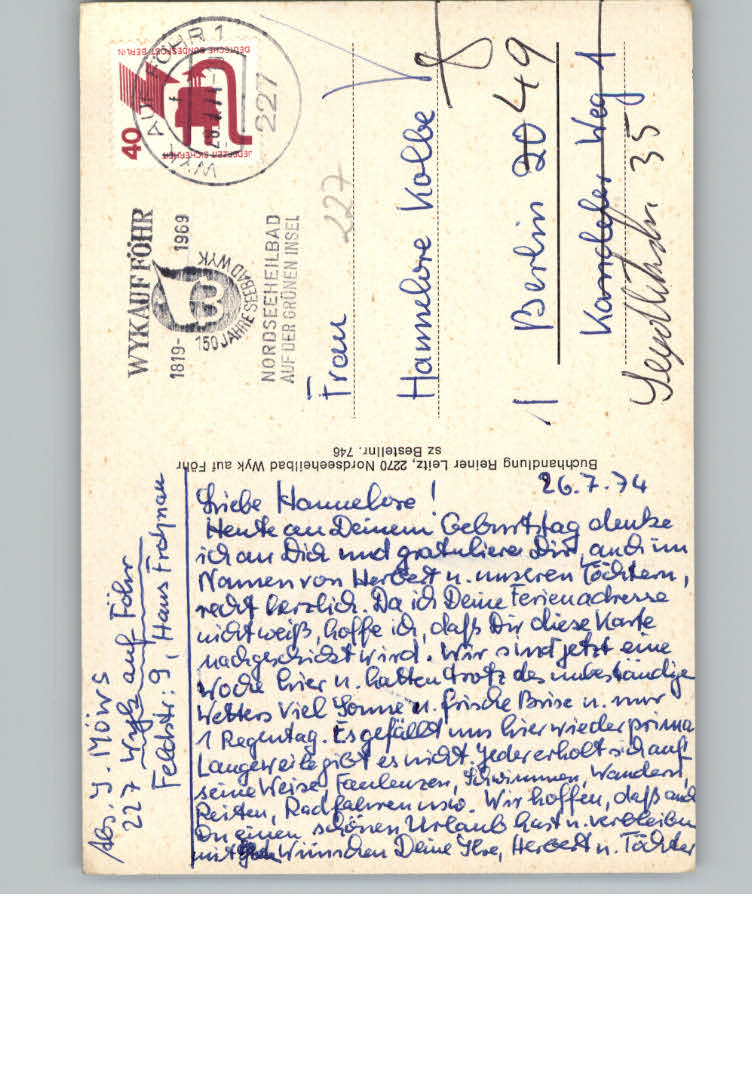 DEUTSCHE BUNDESPOST BERLIN
JEDERZEIT SICHERHEIT
40
WYK AUF FÖHR 1
227
WYK AUF FÖHR
1819-1969
150 JAHRE SEEBAD WYK
NORDSEEHEILBAD
AUF DER GRÜNEN INSEL
227
Frau
Hannelore Kolbe
1 Berlin 20 49
Kandeler Weg 1
35
Buchhandlung Reiner Leitz, 2270 Nordseeheilbad Wyk auf Föhr
sz Bestellnr. 746
Abs. J. Möws
227 Wyk auf Föhr
Feldstr. 9, Haus Frohnau
26.7.74
Liebe Hannelore!
Heute an Deinem Geburtstag denke
ich an Dich und gratuliere Dir, auch im
Namen von Herbert u. unseren Töchtern,
recht herzlich. Da ich Deine Ferienadresse
nicht weiß, hoffe ich, daß Dir diese Karte
nachgeschickt wird. Wir sind jetzt eine
Woche hier u. hatten trotz des unbeständige
Wetters viel Sonne u. frische Brise u. nur
1 Regentag. Es gefällt uns hier wieder prima
Langeweile gibt es nicht. Jeder erholt sich auf
seine Weise, Faulenzen, Schwimmen, Wandern,
Reiten, Radfahren usw. Wir hoffen, daß auch
Du einen schönen Urlaub hast u. verbleiben
mit Wünschen Deine Ilse, Herbert u. Töchter